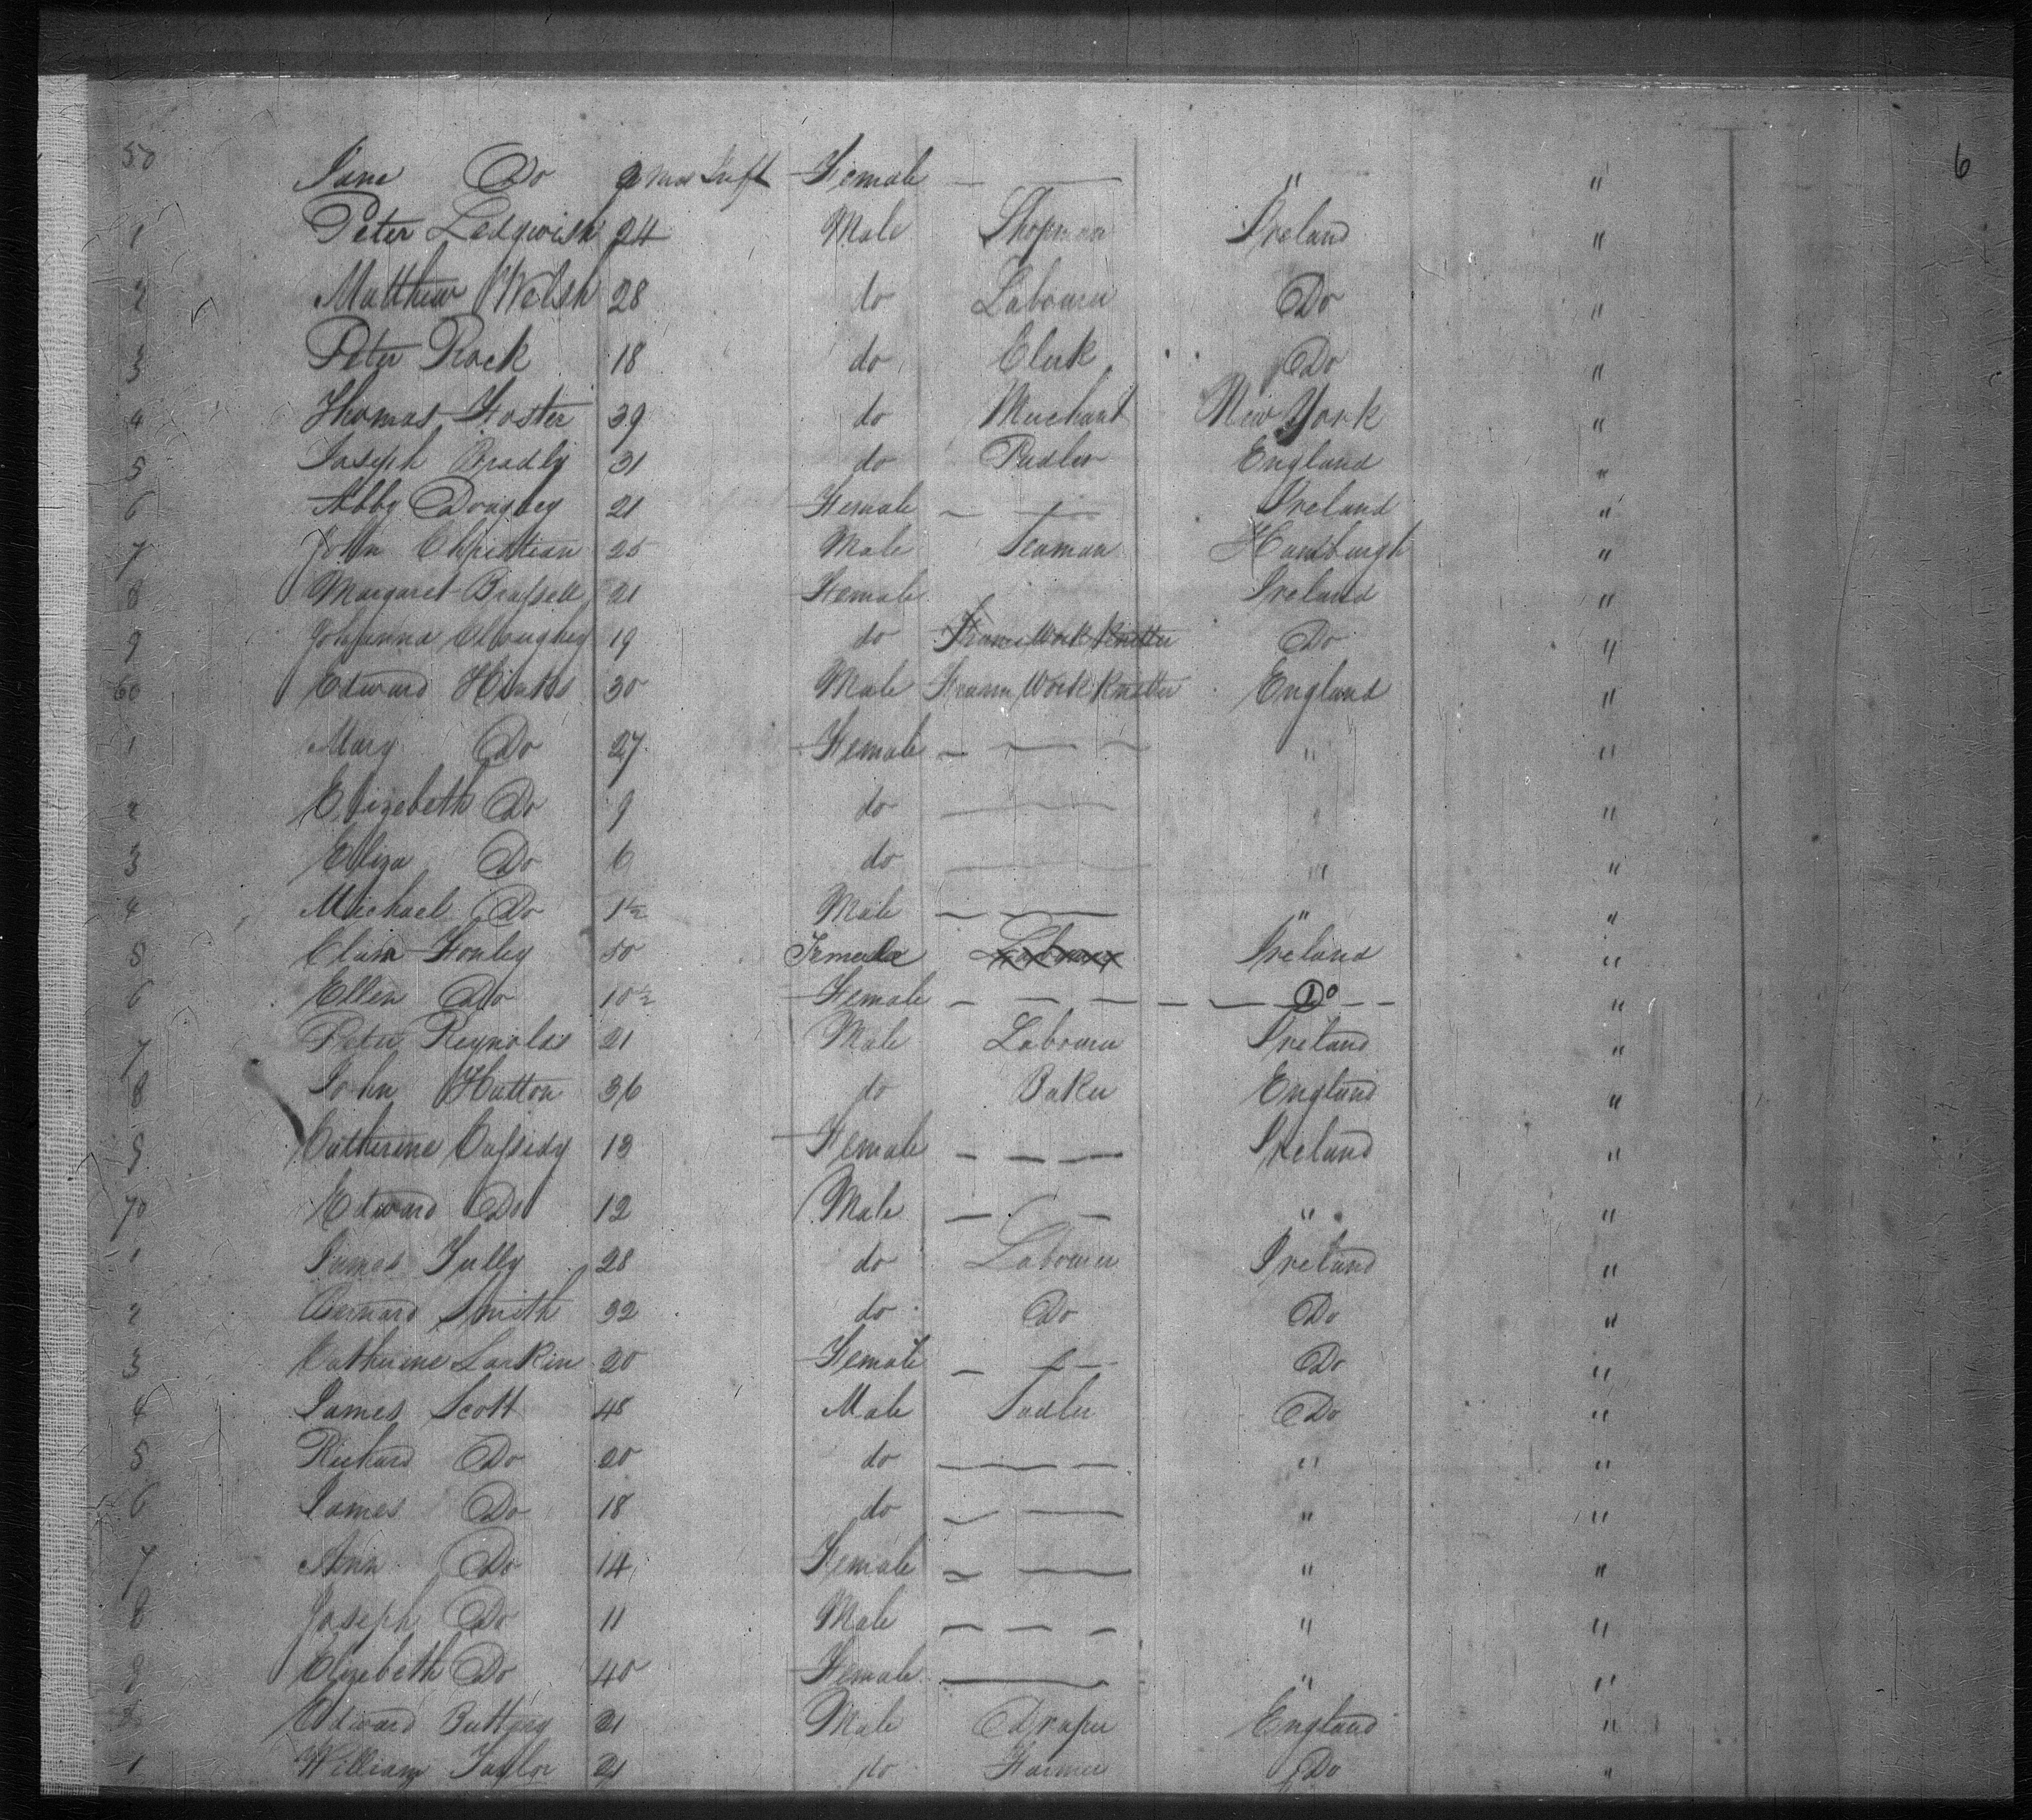 6
50 Jane Do 9 Mos Inft Female — — " "
1 Peter Ledgwish 24 Male Shopman Ireland "
2 Matthew Welsh 28 do Labourer Do "
3 Peter Rock 18 do Clerk Do "
4 Thomas Foster 39 do Merchant New York "
5 Joseph Bradly 31 do Pedler England "
6 Abby 21 Female — — Ireland "
7 John Christian 25 Male Seaman Hamburgh "
8 Margaret Brassell 21 Female Ireland "
9 Johanna 19 do Frame Work Knitter Do "
60 Edward 30 Male Frame Work Knitter England "
1 Mary Do 27 Female — — — " "
2 Elizebeth Do 9 do — " "
3 Eliza Do 6 do — " "
4 Michael Do 1½ Male — — — " "
5 50 Female Labourer Ireland "
6 Ellen Do 10½ Female — — — — — Do — — "
7 Peter Reynolds 21 Male Labourer Ireland "
8 John Hutton 36 do Baker England "
9 Catherine Cassidy 13 Female — — — Ireland "
70 Edward Do 12 Male — — " "
1 James Tully 28 do Labourer Ireland "
2 Bernard Smith 32 do Do Do "
3 Catherine Larkin 20 Female — — Do "
4 James Scott 48 Male Sadler Do "
5 Richard Do 20 do — — — " "
6 James Do 18 do — — " "
7 Ann Do 14 Female — — " "
8 Joseph Do 11 Male — — — " "
9 Elizebeth Do 40 Female — " "
Edward 21 Male Draper England "
1 William Taylor 21 do Farmer Do "